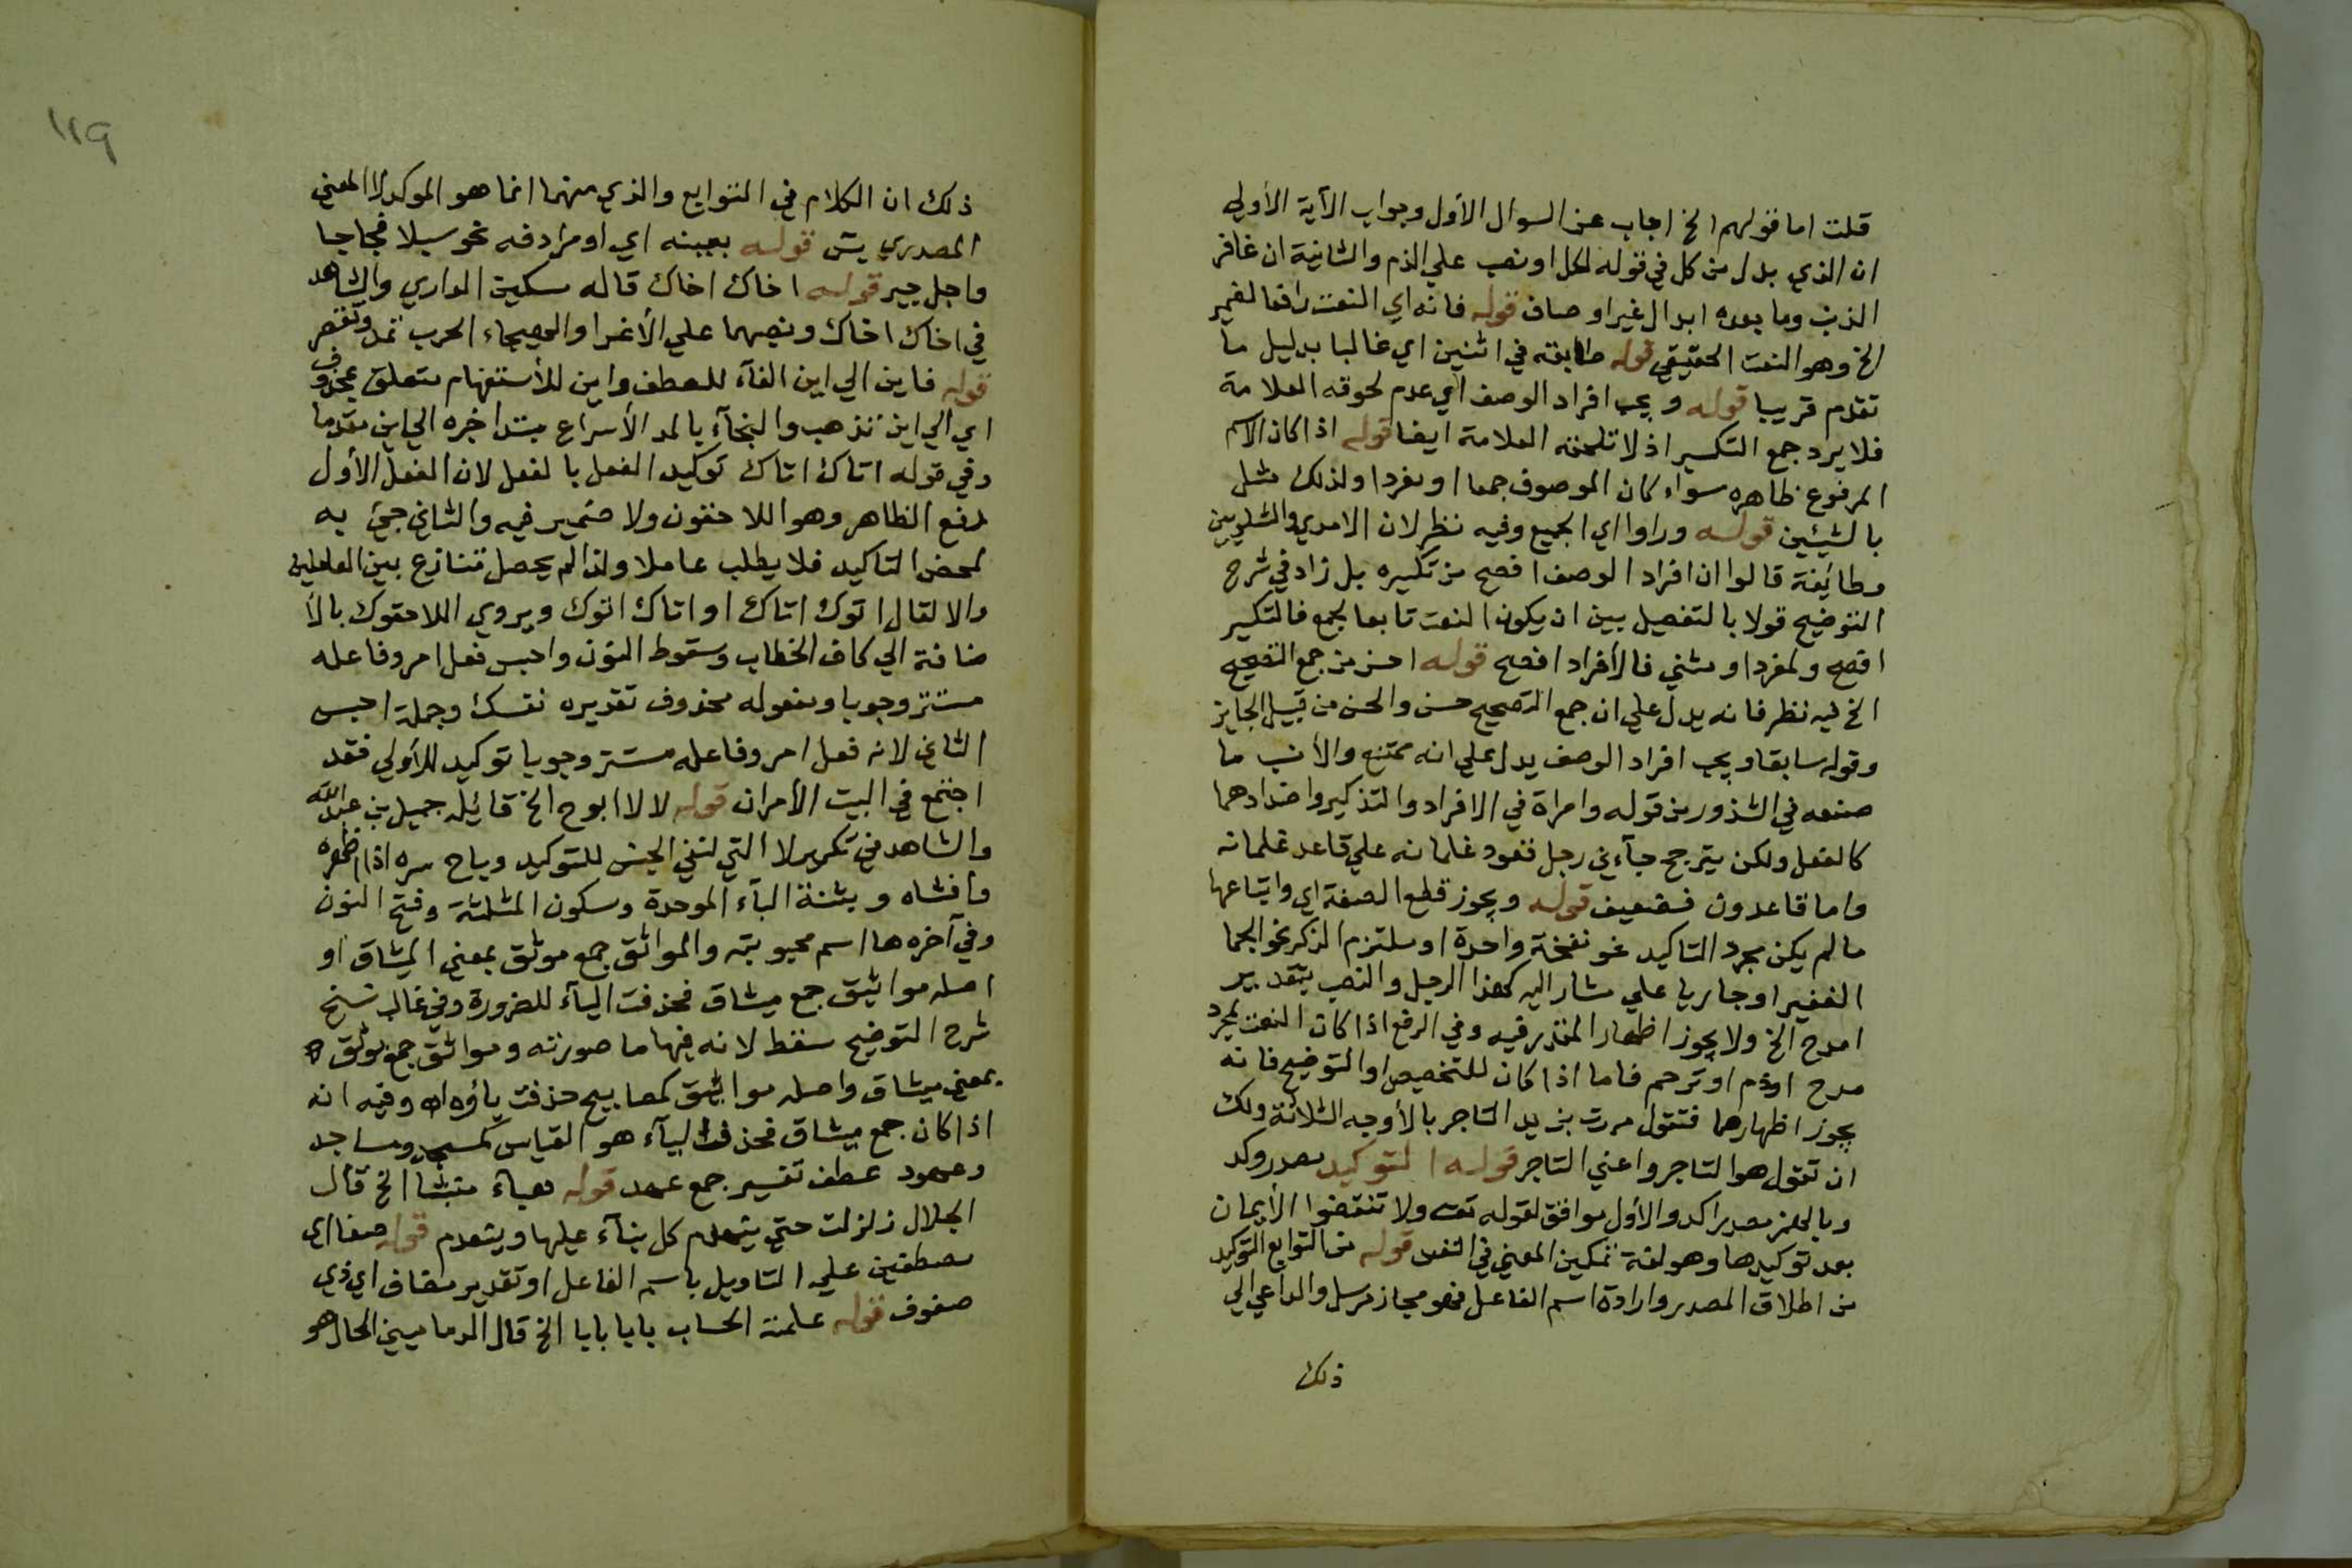 قلت اما قولهم الخ اجاب عن السوال الأول وجواب الآية الأولي
ان الذي بدل من كل في قوله لكل او نصب علي الذم والثانية ان غافر
الذنب وما بعده ابدال لا غير اوصاف قوله فانه اي النعت رافعا لضمير
الخ وهو النعت الحقيقي قوله طابقه في اثنين اي غالبا بدليل ما
تقدم قريبا قوله ويجب افراد الوصف اي عدم لحوقه العلامة
فلا يرد جمع التكسير اذ لا تلحقه العلامة ايضا قوله اذا كان الاسم
المرفوع ظاهره سواء كان الموصوف جمعا او مفردا ولذلك مثل
بالشيئين قوله وراوا اي الجميع وفيه نظر لان الامدي والشلوبين
وطائفة قالوا ان افراد الوصف افصح من تكسيره بل زاد في شرح
التوضيح قولا بالتفصيل بين ان يكون النعت تابعا لجمع فالتكسير
افصح ولمفرد او مثني فالأفراد افصح قوله احسن من جمع التصحيح
الخ فيه نظر فانه يدل علي ان جمع التصحيح حسن والحسن من قبيل الجايز
وقوله سابقا ويجب افراد الوصف يدل علي انه ممتنع والأنسب ما
صنعه في الشذور من قوله وامراة في الافراد والتذكير واضدادهما
كالفعل ولكن يترجح جآءني رجل قعود غلمانه علي قاعد غلمانه
واما قاعدون فضعيف قوله ويجوز قطع الصفة اي واتباعها
ما لم يكن مجرد التاكيد نحو نفخة واحدة او ملتزم الذكر نحو الجما
الغفير او جاريا علي مشار اليه كهذا الرجل والنصب بتقدير
امدح الخ ولا يجوز اظهار المقدر فيه وفي الرفع اذا كان النعت لمجرد
مدح او ذم او ترحم فاما اذا كان للتخصيص او التوضيح فانه
يجوز اظهارهما فتقول مررت بزيد التاجر بالأوجه الثلاثة ولك
ان تقول هو التاجر واعني التاجر قوله التوكيد مصدر وكد
وبالهمز مصدر اكد والأول موافق لقوله تعه ولا تنقضوا الأيمان
بعد توكيدها وهو لغة تمكين المعني في النفس قوله من التوابع التوكيد
من اطلاق المصدر وارادة اسم الفاعل فهو مجاز مرسل والداعي الي
ذلك
١١٩
ذلك ان الكلام في التوابع والذي منهما انما هو الموكد لا المعني
المصدري يش قوله بعينه اي او مرادفه نحو سبلا فجاجا
واجل جير قوله اخاك اخاك قاله سكين الداري والشاهد
في اخاك اخاك ونصبهما علي الأغرا والهيجاء الحرب تمد وتقصر
قوله فاين الي اين الفآء للعطف واين للأستفهام متعلق بمحذوف
اي الي اين تذهب والنجآء بالمد الأسراع مبتدا خبره الي اين مقدما
وفي قوله اتاك اتاك توكيد الفعل بالفعل لان الفعل الأول
رفع الظاهر وهو اللاحقون ولا ضمير فيه والثاني جيئ به
لمحض التاكيد فلا يطلب عاملا ولذا لم يحصل تنازع بين العاملين
والا لقال اتوك اتاك او اتاك اتوك ويروي اللاحقوك بالأ
ضافة الي كاف الخطاب وسقوط النون واحبس فعل امر وفاعله
مستتر وجوبا ومفعوله محذوف تقديره نفسك وجملة احبس
الثاني لانه فعل امر وفاعله مستتر وجوبا توكيد للأولي فقد
اجتمع في البيت الأمران قوله لا لا ابوح الخ قائله جميل بن عبد الله
والشاهد في تكرير لا التي لنفي الجنس للتوكيد وباح سره اذا اظهره
وافشاه وبثنة البآء الموحدة وسكون المثلثة وفتح النون
وفي آخره ها اسم محبوبته والمواثق جمع موثق بمعني الميثاق او
اصله مواثيق جمع ميثاق فحذفت اليآء للضرورة وفي غالب نسخ
شرح التوضيح سقط لانه فيها ما صورته ومواثق جمع موثق
بمعني ميثاق واصله مواثيق كمصابيح حذفت ياؤه اه وفيه انه
اذا كان جمع ميثاق فحذفت اليآء هو القياس كمسجد ومساجد
وعهود عطف تفسير جمع عهد قوله هباء منبثا الخ قال
الجلال زلزلت حتي ينهدم كل بنآء عليها ويتعدم قوله صفا اي
مصطفين علي التاويل باسم الفاعل او تقدير مضاف اي ذوي
صفوف قوله علمته الحساب بابا بابا الخ قال الدماميني الحال هو